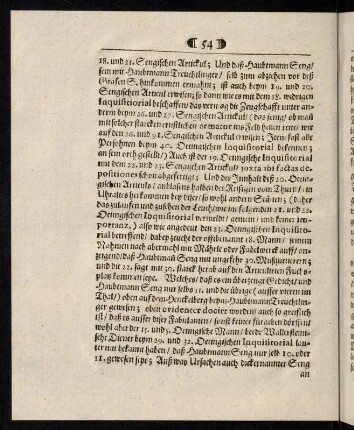 54
18. und 21. Sengischen Artickul; Und daß Haubtmann Seng/
sein mit Haubtmann Treuchtlinger/ selb zum abziehen vor deß
Grafen S. hinkommen ermahnt; ist auch beym 19. und 20.
Sengischen Articul erwisen/ so dann wie es mit dem 18. widrigen
Inquisitorial beschaffen/ das vermag die Zeugschafft unter an-
dern beym 26. und 27. Sengischen Artickul/ ( das jenig/ ob man
mit solcher starcken armatur ins Feld hetten
auf den 26. und 91. Sengischen Artickul erwisen; Item fast alle
Persohnen beym 40. Oetingischen Inquisitorial bekennen;
an sein orth gestellt/) Auch ist der 19. Oetingische Inquisitorial
mit dem 22. und 23. Sengischen Artickul juxta ibi factas de-
positiones schon abgefertigt; Und der Innhalt deß 20. Oetin-
gischen Articuls
Uhraltes herkommen bey diser/ so wohl andern
das zulauffen und zusehen der Leuth/ wie im folgenden 21. und 22.
Oetingischen Inquisitorial vermeldt/ gemein/ und keiner im-
portanz,) also wie angedeut den 23. Oetingischen Inquisito-
rial betreffend/ dabey zeucht der offtbenante 18. Mann/ jenem
Nahmen nach abermahl mit Mährle oder Fabelwerck auff/ an-
zeigend/ daß Haubtmañ Seng mit ungefehr 30. Musquetierern;
und der 22. sagt mit 30. starck herab auf den Articulirten Fuchs-
play kommen seye. Welches/ daß es ein überzeugt Gedicht/ und
Haubtmann Seng nur selb 11. und die übrige ( ausser vieren im
Thal/) oben auf dem Henckelberg beym Haubtmann Treuchtlin-
ger gewesen; oben evidenter docirt worden/ auch so greifflich
ist/ daß es ausser diser Fabulanten/ sonst keiner für geben dörffen/
wohl aber der 15. und 3. Oetingische Mann/ beede Wallersteini-
sche Diener beym 29. und 32. Oetingischen Inquisitorial lau-
ter mit bekannt haben/ daß Haubtmann Seng nur selb 10. oder
11. gewesen seye; Auß was Ursachen auch dickernannter Seng
an